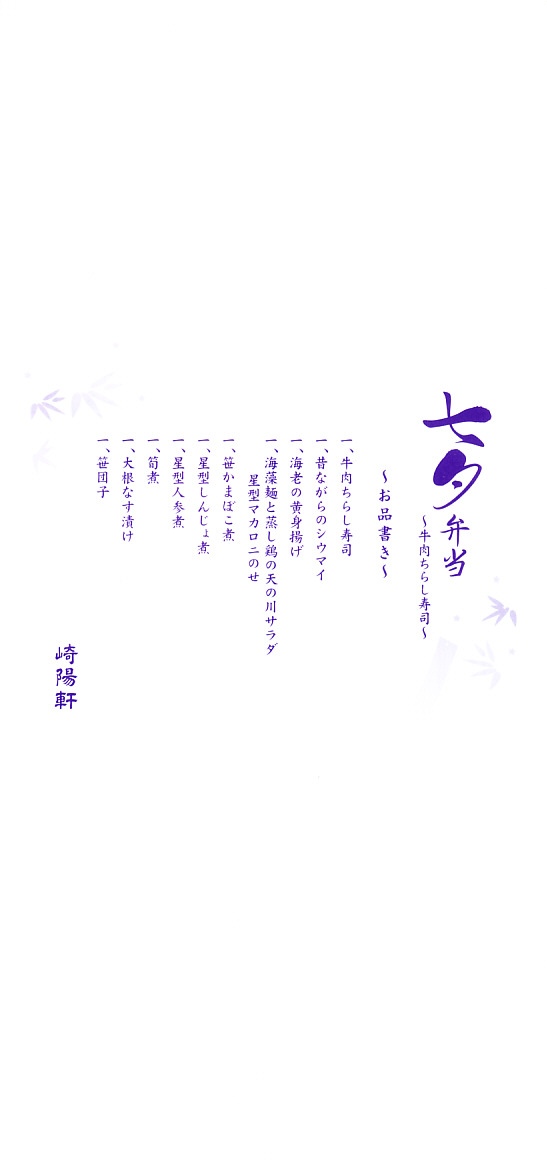 七夕弁当
～牛肉ちらし寿司～
～お品書き～
一、牛肉ちらし寿司
一、昔ながらのシウマイ
一、海老の黄身揚げ
一、海藻麺と蒸し鶏の天の川サラダ
星型マカロニのせ
一、笹かまぼこ煮
一、星型しんじょ煮
一、星型人参煮
一、筍煮
一、大根なす漬け
一、笹団子
崎陽軒